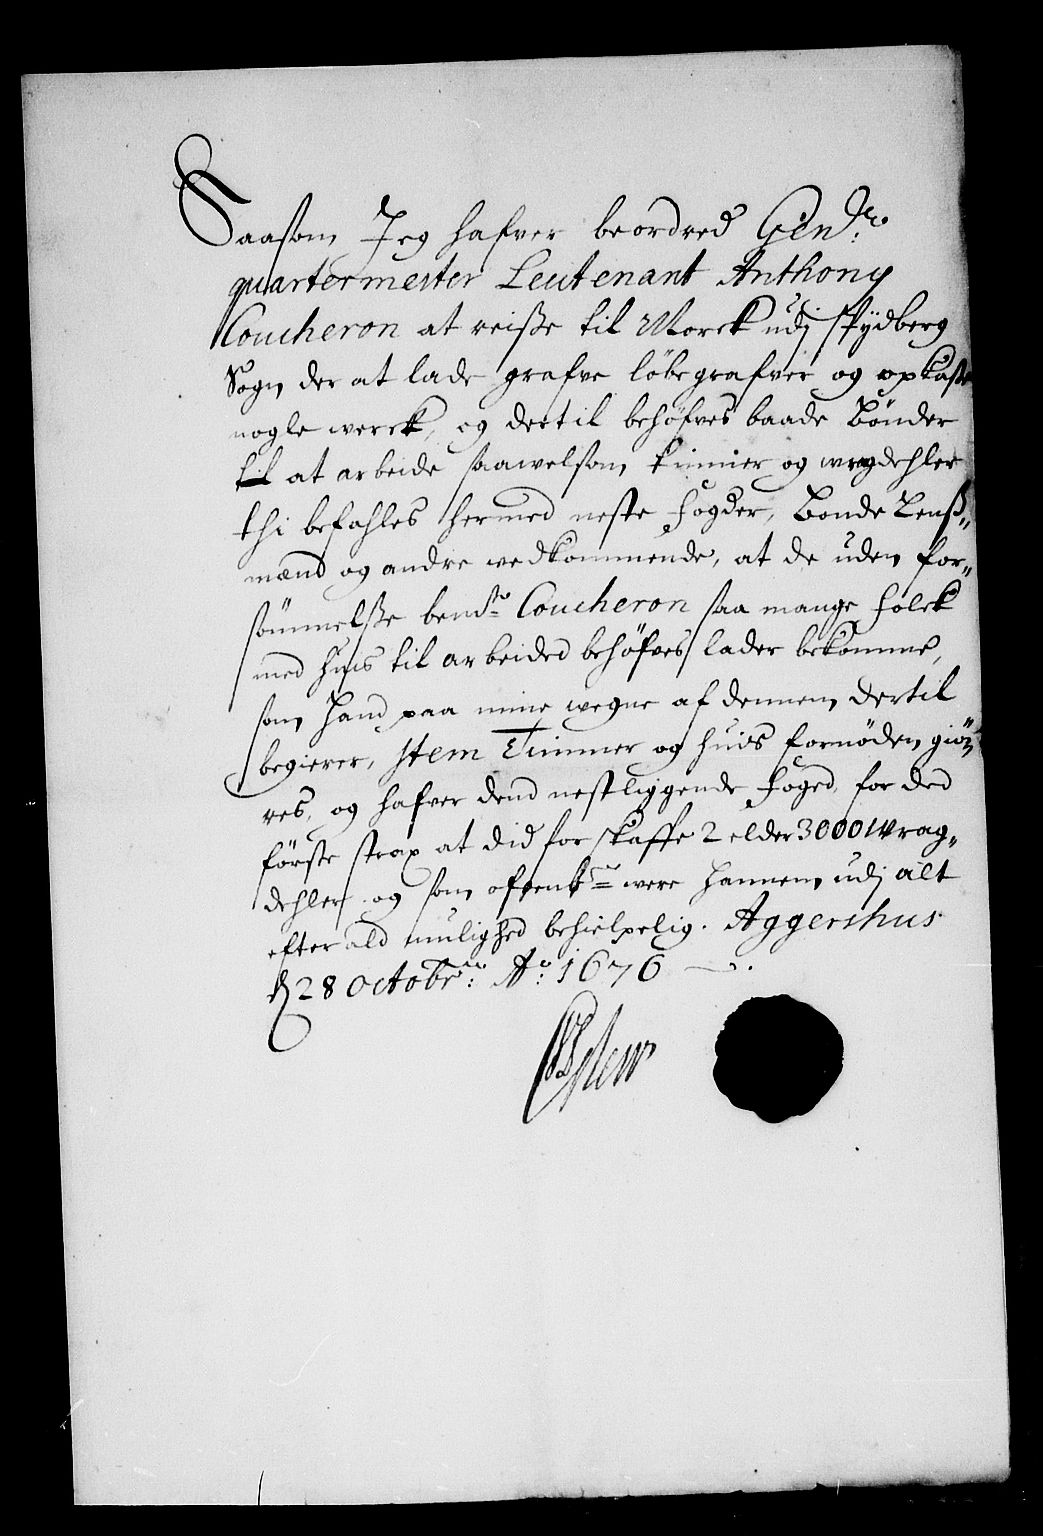 Saasom Jeg hafver beordred Gen.
quartermester Leutenant Anthony
Coucheron at reisse til Morck udj Spydberg
Sogn, der at lade grafve löbegrafver og opkaste
nogle werck, og dertil behöfves baade Bönder
til at arbeide saawelsom timmer og wragdehler
thi befahles hermed neste fogder, Bonde Lenss„
mænd og andre vedkommende, at de uden for„
sömmelsse bem.te Coucheron saa mange folck
med huis til arbeided behöfves lader bekomme,
som hand paa mine wegne af dennem dertil
begierer, Item Timmer og huis fornöden giö„
res, og hafver dend nestliggende foged, for ded
förste strax at did forskaffe 2 elder 3000 Wrag„
dehler og som ofvenb.te were hannem udj alt
efter ald mulighed behielpelig. Aggershus
d 28 Octobr: Ao: 1676